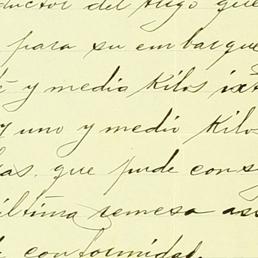 ductor del trigo que
para su embarque
y medio Kilos
y uno y medio Kilos
que pude
última remesa
conformidad.